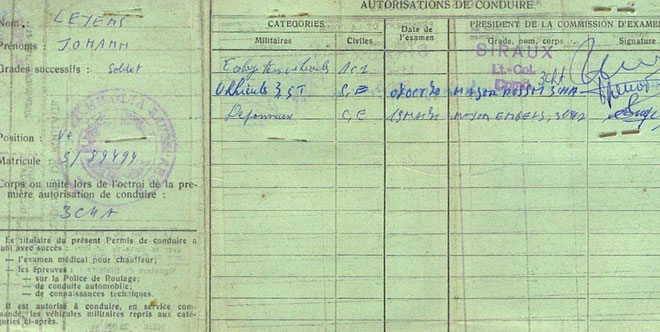 Nom : LEYENS
Prénoms : JOHANN
Grades successifs : Soldat
Position : Ve
Matricule : S/89499
Corps ou unité lors de l'octroi de la pre-
mière autorisation de conduire :
3CHA
Le titulaire du présent Permis de conduire a
subi avec succès :
— l'examen médical pour chauffeur;
— les épreuves :
— sur la Police de Roulage;
— de conduite automobile;
— de connaissances techniques.
Il est autorisé à conduire, en service com-
mandé, les véhicules militaires repris aux caté-
gories ci-après.
AUTORISATIONS DE CONDUIRE.
CATEGORIES
Militaires
Civiles
Date de
l'examen
PRESIDENT DE LA COMMISSION D'EXAMEN
Grade, nom, corps :
Signature
SIRAUX
Lt-Col.
3CHA
Véhicule 3,5T C,E OCT
Dépanneur C,E MAJOR 3CHA